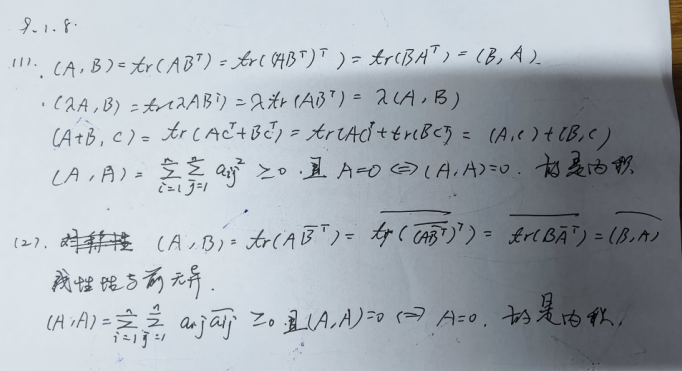 9.1.8.
(1). (A,B)=tr(AB^T)=tr((AB^T)^T)=tr(BA^T)=(B,A).
(λA,B)=tr(λAB^T)=λtr(AB^T)=λ(A,B)
(A+B,C)=tr(AC^T+BC^T)=tr(AC^T)+tr(BC^T)=(A,C)+(B,C)
(A,A)=\sum_{i=1}^{n}\sum_{j=1}^{n} a_{ij}^2 ≥0.且 A=0⇔(A,A)=0. 故是内积
(2). (A,B)=tr(A\overline{B}^T)=\overline{tr(\overline{(A\overline{B}^T)^T})}=\overline{tr(B\overline{A}^T)}=\overline{(B,A)}
线性性与前无异.
(A,A)=\sum_{i=1}^{n}\sum_{j=1}^{n} a_{ij}\overline{a_{ij}} ≥0 且(A,A)=0⇔A=0. 故是内积.